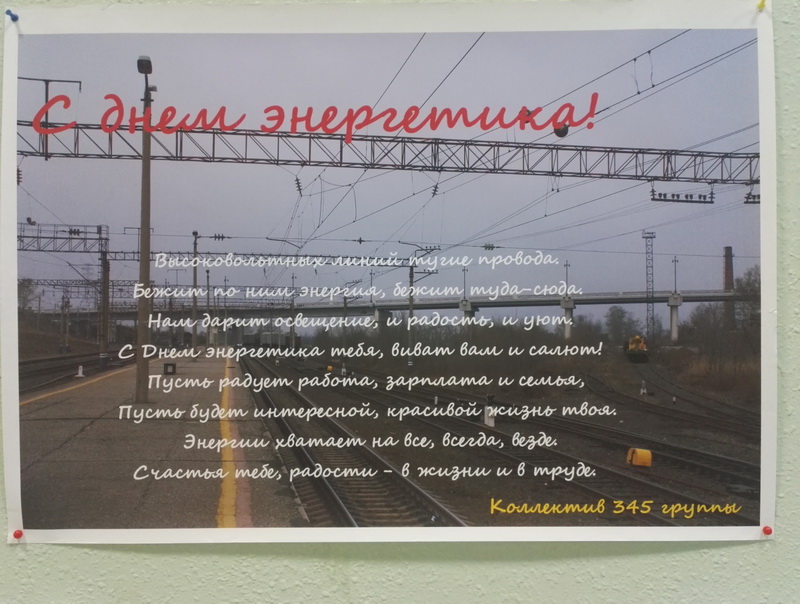 С днем энергетика!
Высоковольтных линий тугие провода.
Бежит по ним энергия, бежит туда-сюда.
Нам дарит освещение, и радость, и уют.
С Днем энергетика тебя, виват вам и салют!
Пусть радует работа, зарплата и семья,
Пусть будет интересной, красивой жизнь твоя.
Энергии хватает на все, всегда, везде.
Счастья тебе, радости - в жизни и в труде.
Коллектив 345 группы